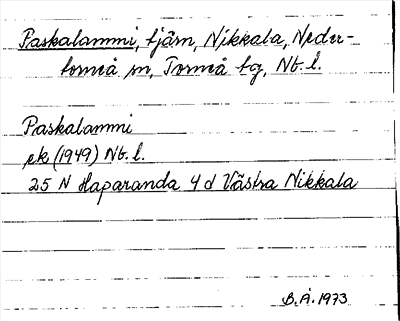 Paskalammi, tjärn, Nikkala, Neder-
torneå sn, Torneå tg, Nb. l.
Paskalammi
ek (1949) Nb. l.
25 N Haparanda 4 d Västra Nikkala
B.Å. 1973